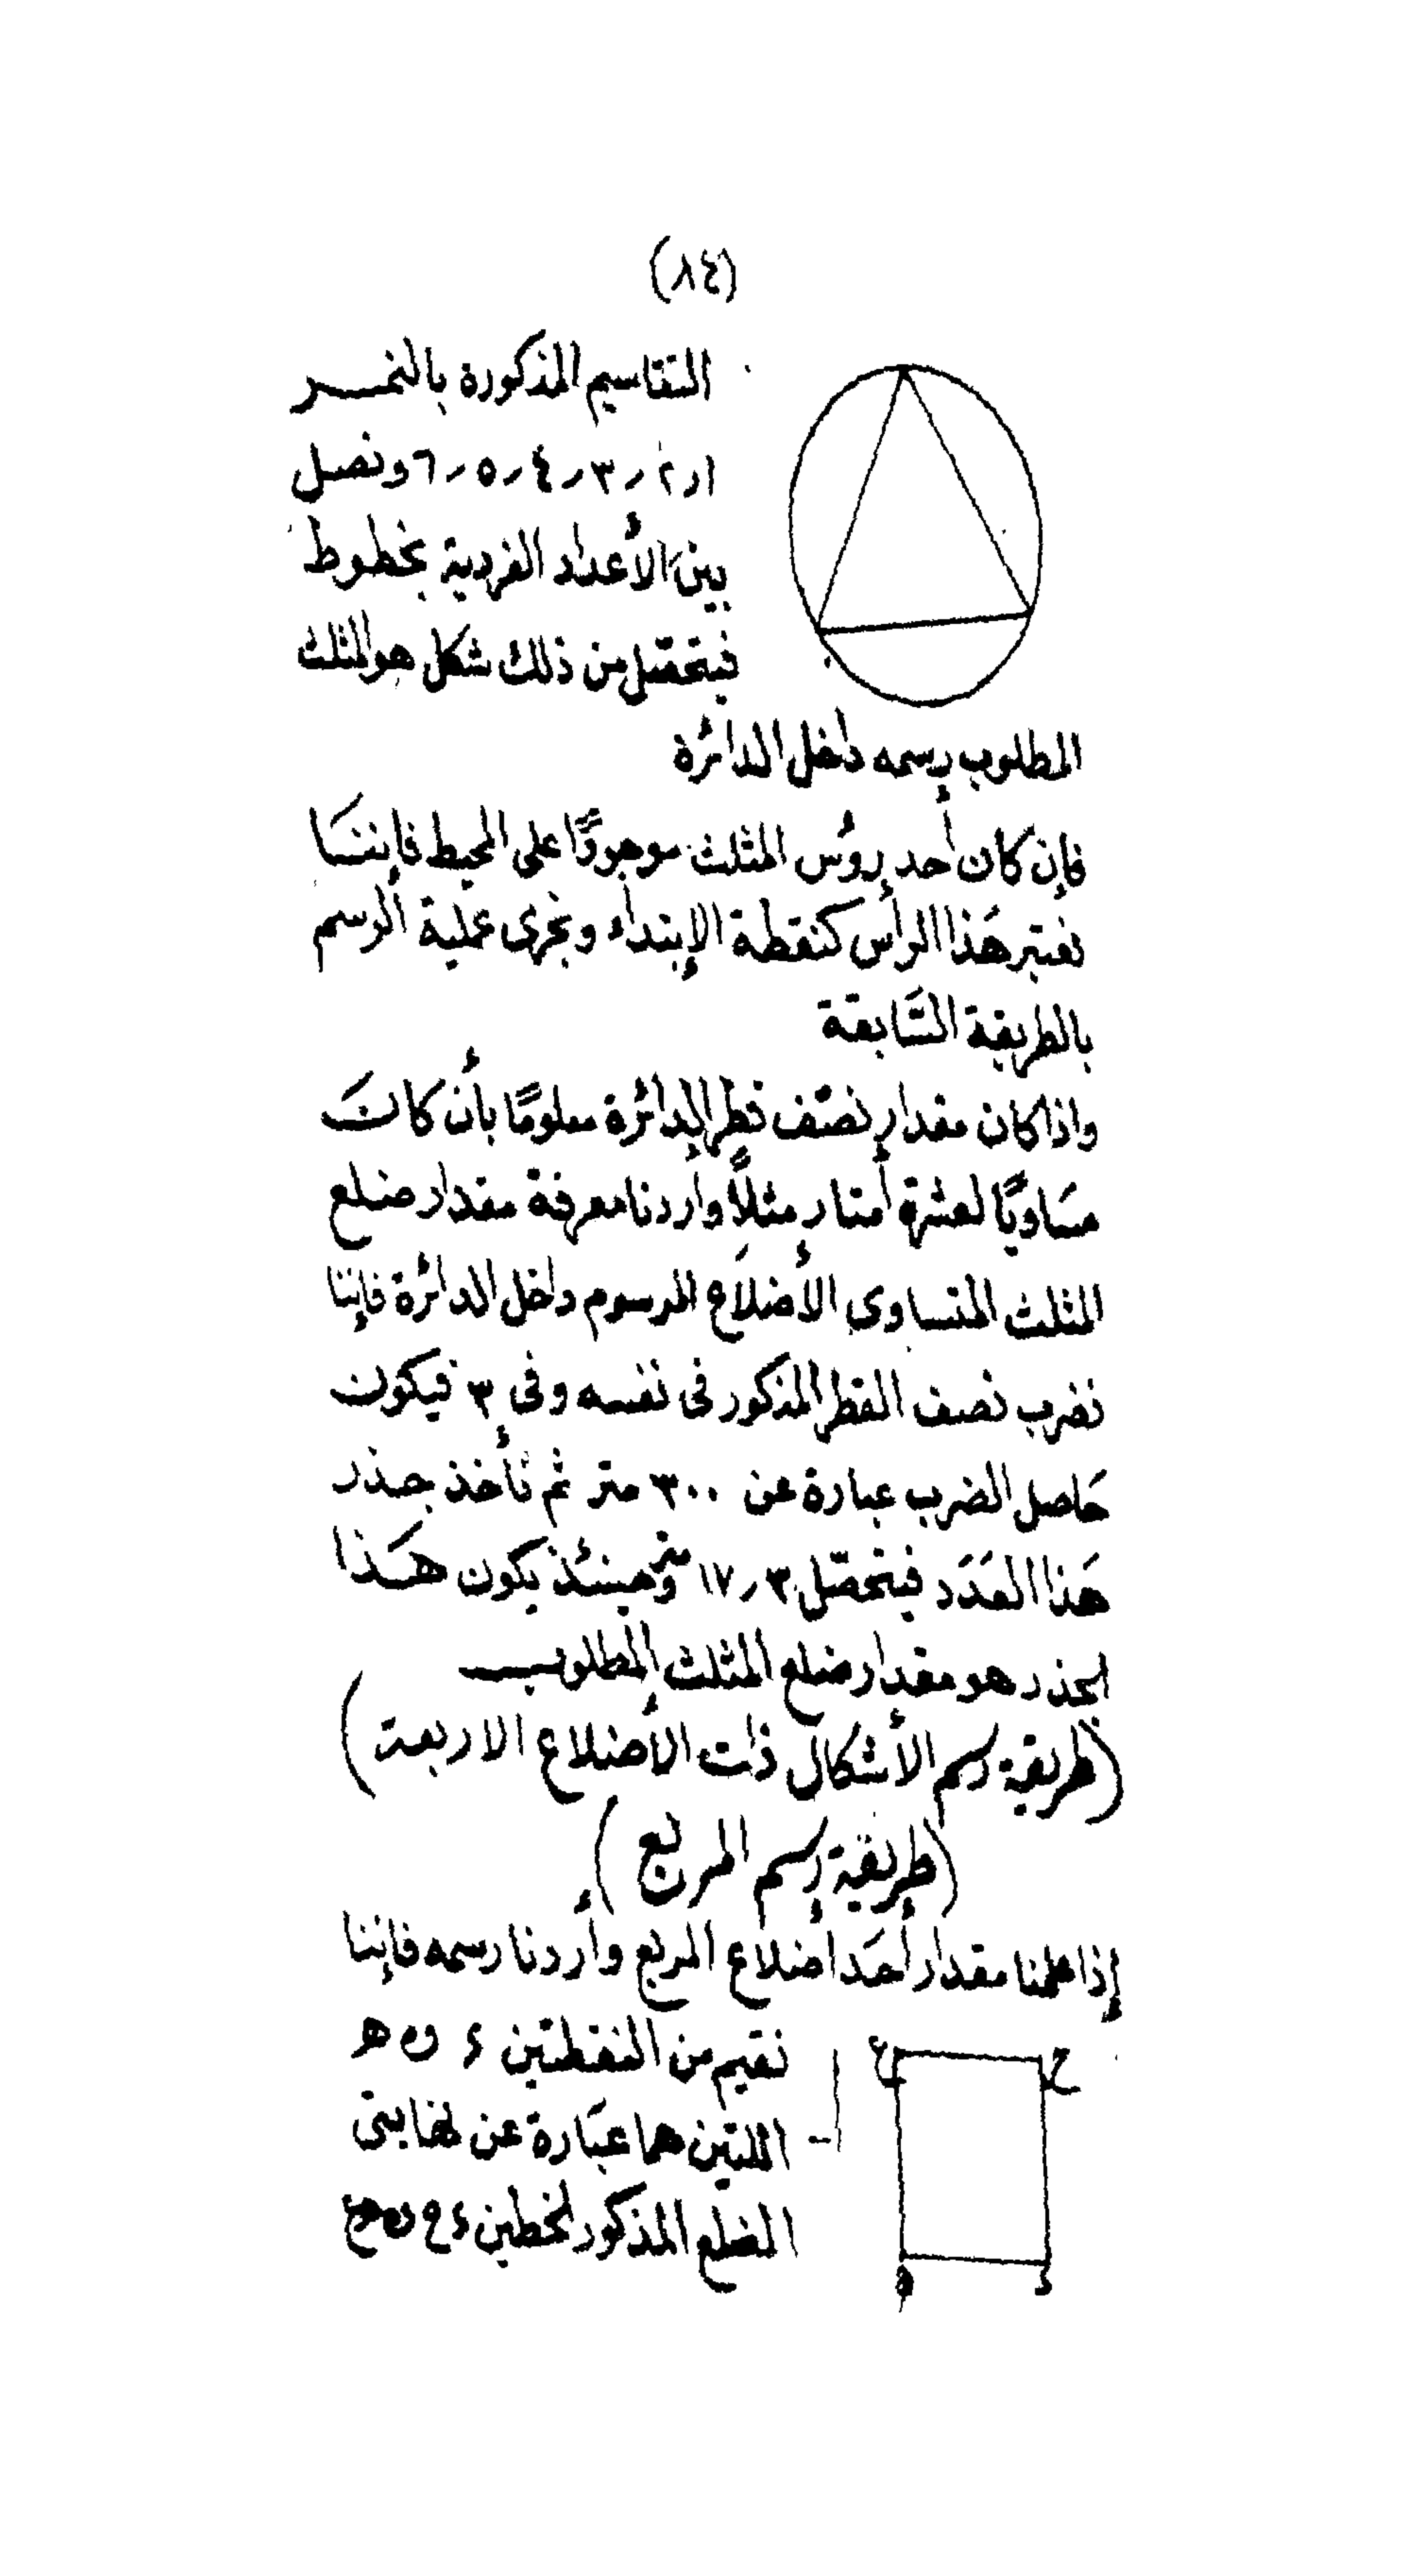 (٨٤)
التقاسيم المذكورة بالنمر
١ر٢ر٣ر٤ر٥ر٦ ونصل
بين الأعداد الفردية بخطوط
فيتحصّل من ذلك شكل هو المثلث
المطلوب رسمه داخل الدائرة
فإن كان أحد رؤس المثلث موجودًا على المحيط فإننا
نعتبر هَذا الرأس كنقطة الإبتداء ونجرى عملية الرسم
بالطريقة السَّابقة
واذا كان مقدار نصف قطر الدائرة معلومًا بأن كانَ
مسَاويًا لعشرة أمتار مثلاً وأردنا معرفة مقدار ضلع
المثلث المتساوى الأضلاَع المرسوم داخل الدائرة فإننا
نضرب نصف القطر المذكور فى نفسه وفى ٣ فيكون
حَاصل الضرب عبارة عن ٣٠٠ متر ثم نأخذ جذر
هَذا العدَد فيتحصّل ١٧ر٣ متر وحينئذ يكون هَذا
الجذر هو مقدار ضلع المثلث المطلوب
(طريقة رسم الأشكال ذات الأضلاع الاربعة)
(طريقة رسم المربع)
إذا علمنا مقدار أحَد أضلاع المربع وأردنا رسمه فإننا
نقيم من النقطتين ء و ه
اللتين هما عبَارة عن نهايتى
الضلع المذكور الخطين
ع
ح
ه
ء